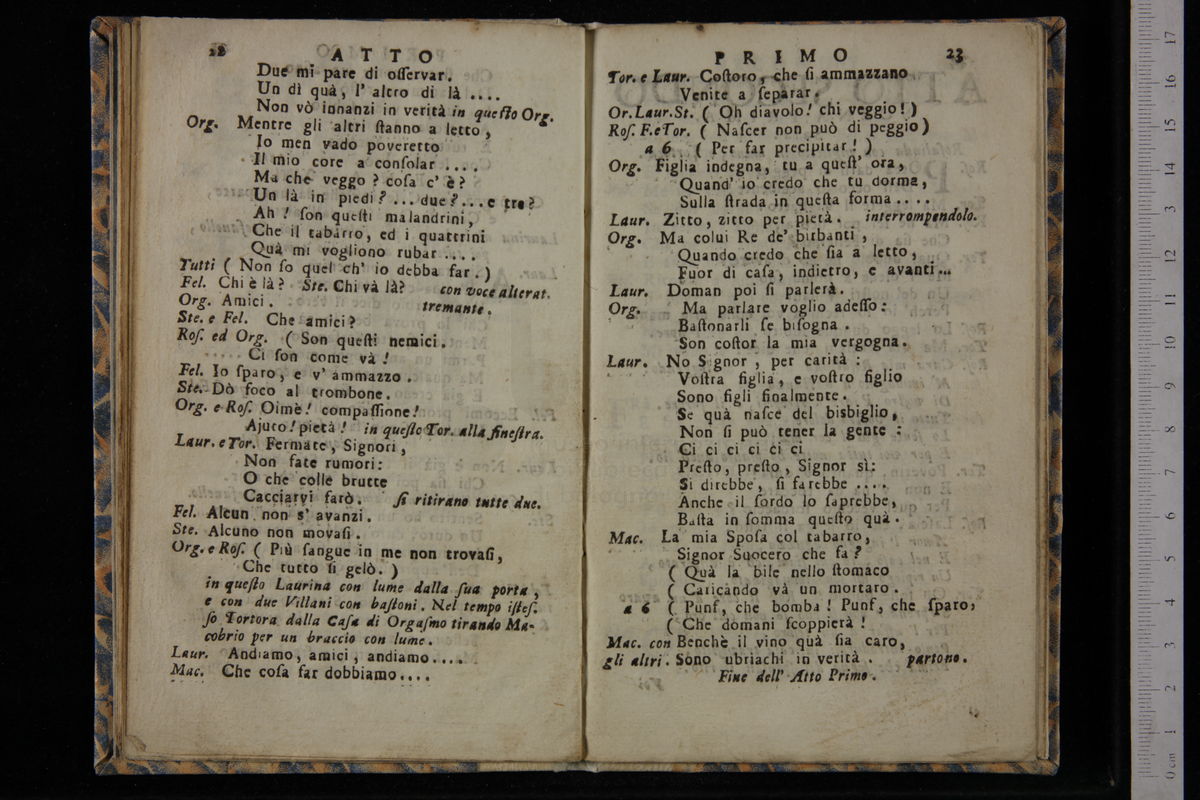 22 ATTO
Due mi pare di oſſervar.
Un dì quà, l' altro di là ....
Non vò innanzi in verità in queſto Org.
Org. Mentre gli altri ſtanno a letto,
Io men vado poveretto
Il mio core a conſolar ....
Ma che veggo? coſa c' è?
Un là in piedi? ... due? ... e tre?
Ah! ſon queſti malandrini,
Che il tabarro, ed i quattrini
Quà mi vogliono rubar ....
Tutti ( Non ſo quel ch' io debba far. )
Fel. Chi è là? Ste. Chi và là? con voce alterat.
Org. Amici. tremante.
Ste. e Fel. Che amici?
Roſ. ed Org. ( Son queſti nemici.
Ci ſon come và!
Fel. Io ſparo, e v' ammazzo.
Ste. Dò foco al trombone.
Org. e Roſ. Oimè! compaſſione!
Ajuto! pietà! in queſto Tor. alla fineſtra.
Laur. e Tor. Fermate, Signori,
Non fate rumori:
O che colle brutte
Cacciarvi farò. ſi ritirano tutte due.
Fel. Alcun non s' avanzi.
Ste. Alcuno non movaſi.
Org. e Roſ. ( Più ſangue in me non trovaſi,
Che tutto ſi gelò. )
in queſto Laurina con lume dalla ſua porta,
e con due Villani con baſtoni. Nel tempo iſteſ.
ſo Tortora dalla Caſa di Orgaſmo tirando Ma-
cobrio per un braccio con lume.
Laur. Andiamo, amici, andiamo....
Mac. Che coſa far dobbiamo....
PRIMO 23
Tor. e Laur. Coſtoro, che ſi ammazzano
Venite a ſeparar.
Or. Laur. St. ( Oh diavolo! chi veggio! )
Roſ. F. e Tor. ( Naſcer non può di peggio )
a 6 ( Per far precipitar! )
Org. Figlia indegna, tu a queſt' ora,
Quand' io credo che tu dorma,
Sulla ſtrada in queſta forma....
Laur. Zitto, zitto per pietà. interrompendolo.
Org. Ma colui Re de' birbanti,
Quando credo che ſia a letto,
Fuor di caſa, indietro, e avanti...
Laur. Doman poi ſi parlerà.
Org. Ma parlare voglio adeſſo:
Baſtonarli ſe biſogna.
Son coſtor la mia vergogna.
Laur. No Signor, per carità:
Voſtra figlia, e voſtro figlio
Sono figli finalmente.
Se quà naſce del bisbiglio,
Non ſi può tener la gente:
Ci ci ci ci ci ci
Preſto, preſto, Signor sì:
Si direbbe, ſi farebbe ....
Anche il ſordo lo ſaprebbe,
Baſta in ſomma queſto quà.
Mac. La mia Spoſa col tabarro,
Signor Suocero che fa?
( Quà la bile nello ſtomaco
( Caricando và un mortaro.
a 6 ( Punf, che bomba! Punf, che ſparo,
( Che domani ſcoppierà!
Mac. con Benchè il vino quà ſia caro,
gli altri. Sono ubriachi in verità. partono.
Fine dell' Atto Primo.